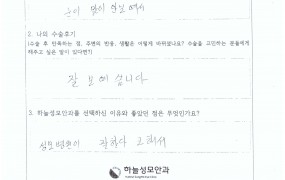 눈이 많이 안보여서
2. 나의 수술후기
(수술 후 만족하는 점, 주변의 반응, 생활은 어떻게 바뀌었나요? 수술을 고민하는 분들에게
해주고 싶은 말이 있다면?)
잘 보에습니다
3. 하늘성모안과를 선택하신 이유와 좋았던 점은 무엇인가요?
성모병원이 잘한다 그래서
하늘성모안과